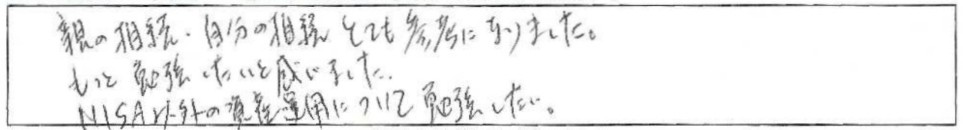 親の相続・自分の相続とても参考になりました。
もっと勉強したいと感じました.
NISA以外の資産運用について勉強したい。